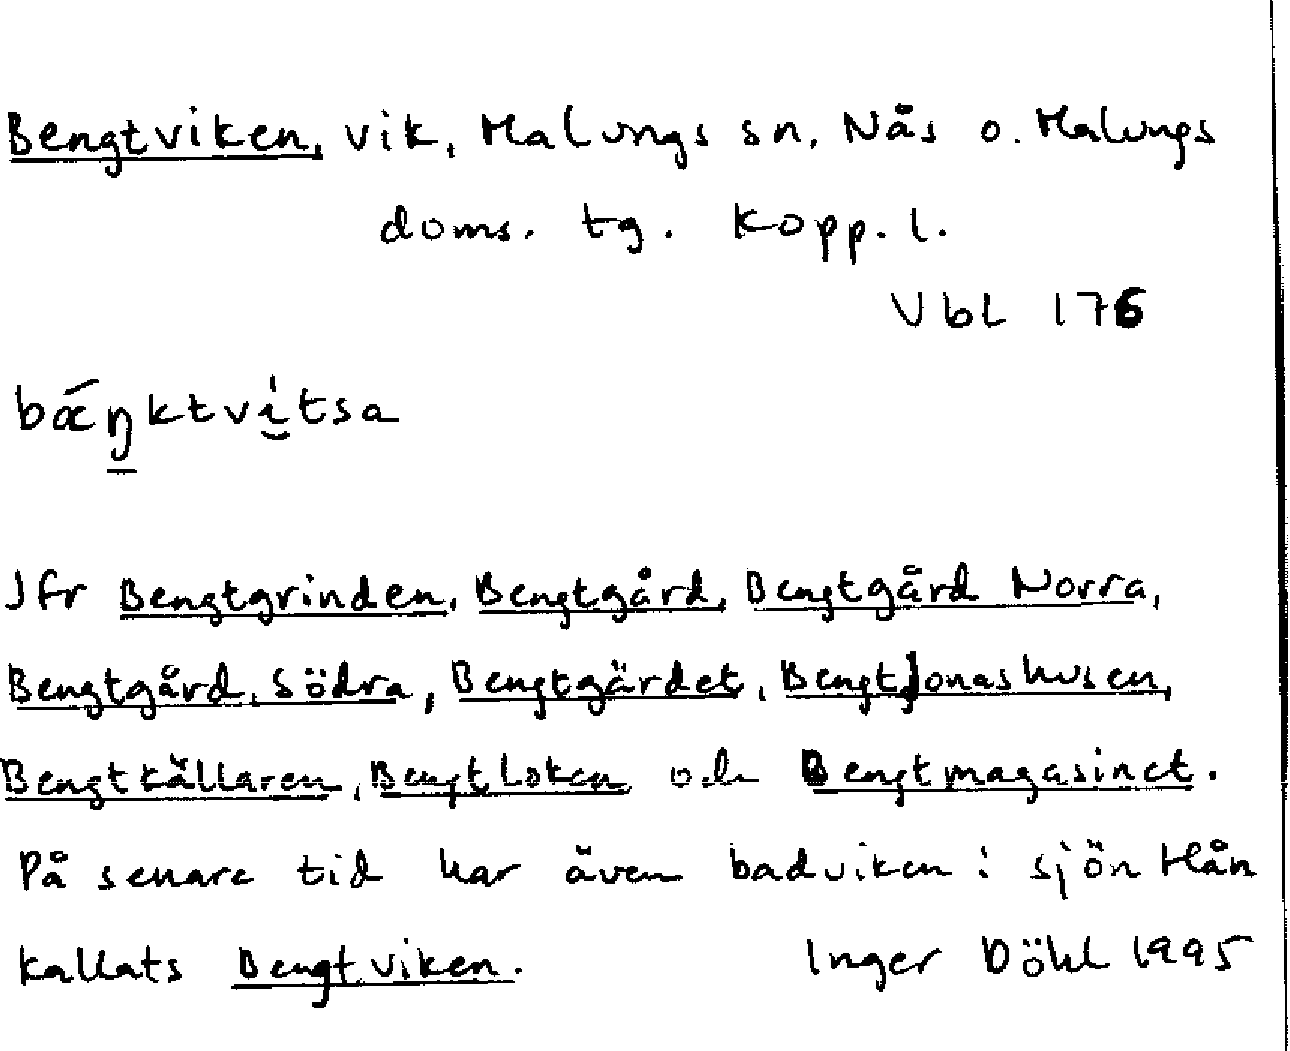 Bengtviken, vik, Malungs sn, Nås o. Malungs
doms. tg. Kopp. l.
Vbl 176
bǽŋktvı̆tsa
Jfr Bengtgrinden, Bengtgård, Bengtgård Norra,
Bengtgård, Södra, Bengtgärdet, BengtJonashusen,
Bengtkällaren, Bengtloken och Bengtmagasinet.
På senare tid har även badviken i sjön Mån
kallats Bengtviken. Inger Döhl 1995